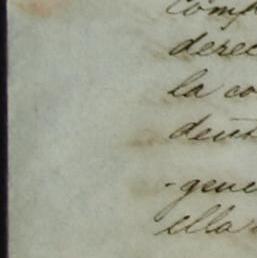 comp
derec
la co
dent
-gene
ella